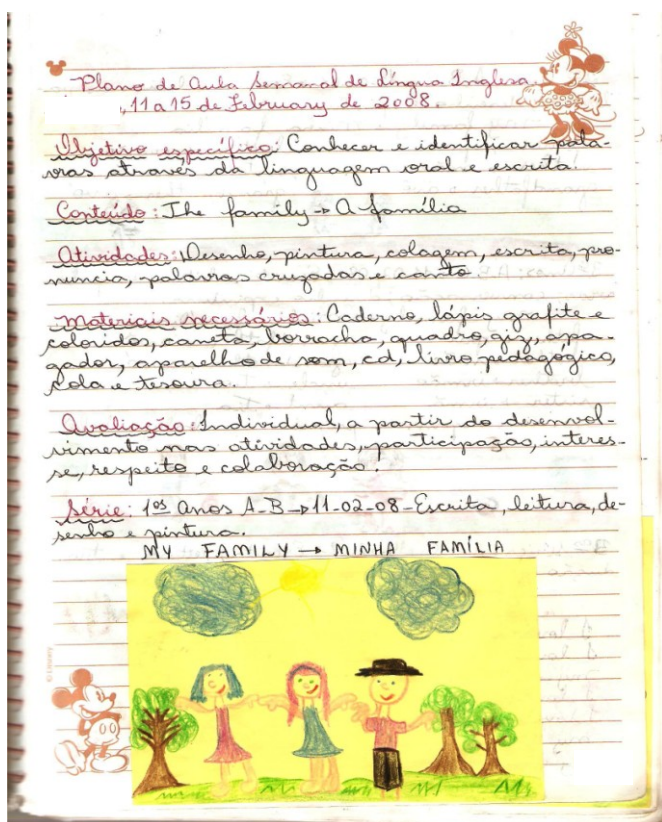 Plano de Aula Semanal de Língua Inglesa
11 a 15 de February de 2008.
Objetivo específico: Conhecer e identificar pala-
vras através da linguagem oral e escrita.
Conteúdo: The family → A família
Atividades: Desenho, pintura, colagem, escrita, pro-
nuncia, palavras cruzadas e canto.
Materiais necessários: Caderno, lápis grafite e
coloridos, caneta, borracha, quadro, giz, apa-
gador, aparelho de som, cd, livro pedagógico,
cola e tesoura.
Avaliação: Individual, a partir do desenvol-
vimento nas atividades, participação, interes-
se, respeito e colaboração.
Série: 1os Anos A-B → 11-02-08 - Escrita, leitura, de-
senho e pintura.
MY FAMILY → MINHA FAMÍLIA
© Disney